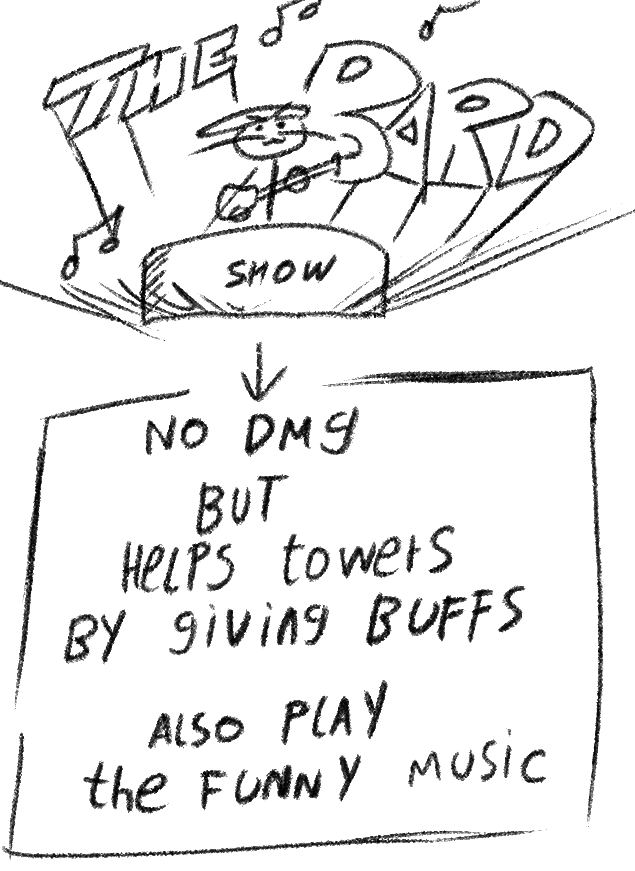 THE BARD
SHOW
NO DMg
BUT
HELPS towerS
BY giving BUFFS
ALSO PLAY
the FUNNY MUSiC